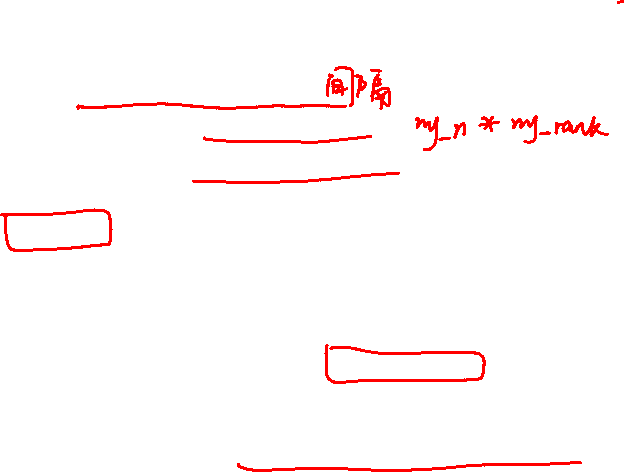 间隔
my_n * my_rank